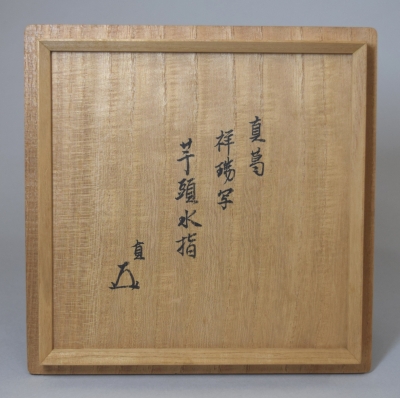 真葛
祥瑞写
芋頭水指
直